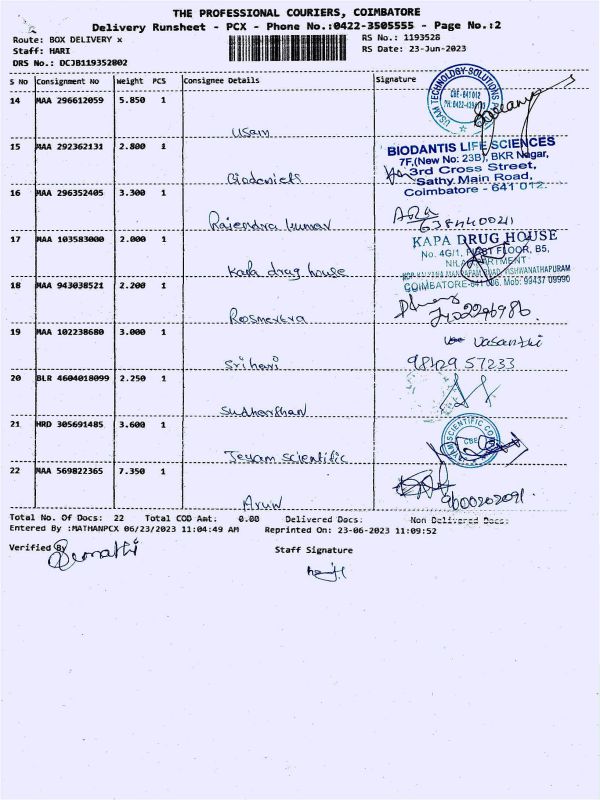 THE PROFESSIONAL COURIERS, COIMBATORE
Delivery Runsheet - PCX - Phone No.:0422-3505555 - Page No.:2
Route: BOX DELIVERY x RS No.: 1193528
Staff: HARI RS Date: 23-Jun-2023
DRS No.: DCJB119352802
S No Consignment No Weight PCS Consignee Details Signature
14 MAA 296612059 5.850 1
USAM TECHNOLOGY SOLUTIONS
CBE - 641 012
Usam
15 MAA 292362131 2.800 1
BIODANTIS LIFE SCIENCES
7F,(New No: 23B), BKR Nagar,
3rd Cross Street,
Sathy Main Road,
Coimbatore - 641 012.
16 MAA 296352405 3.300 1
Rajendra kumar
17 MAA 103583000 2.000 1
KAPA DRUG HOUSE
No. 4G/1, FIRST FLOOR, B5,
COIMBATORE-641 006. Mob: 99437 09990
Kapa drag house
18 MAA 943038521 2.200 1
19 MAA 102238680 3.000 1
Vasanthi
Srihari
98429 57233
20 BLR 4604018099 2.250 1
Sudharshan
21 HRD 305691485 3.600 1
Jeyam Scientific
22 MAA 569822365 7.350 1
9600202091.
Arun
Total No. Of Docs: 22 Total COD Amt: 0.00 Delivered Docs: Non Delivered Docs:
Entered By :MATHANPCX 06/23/2023 11:04:49 AM Reprinted On: 23-06-2023 11:09:52
Verified By Staff Signature